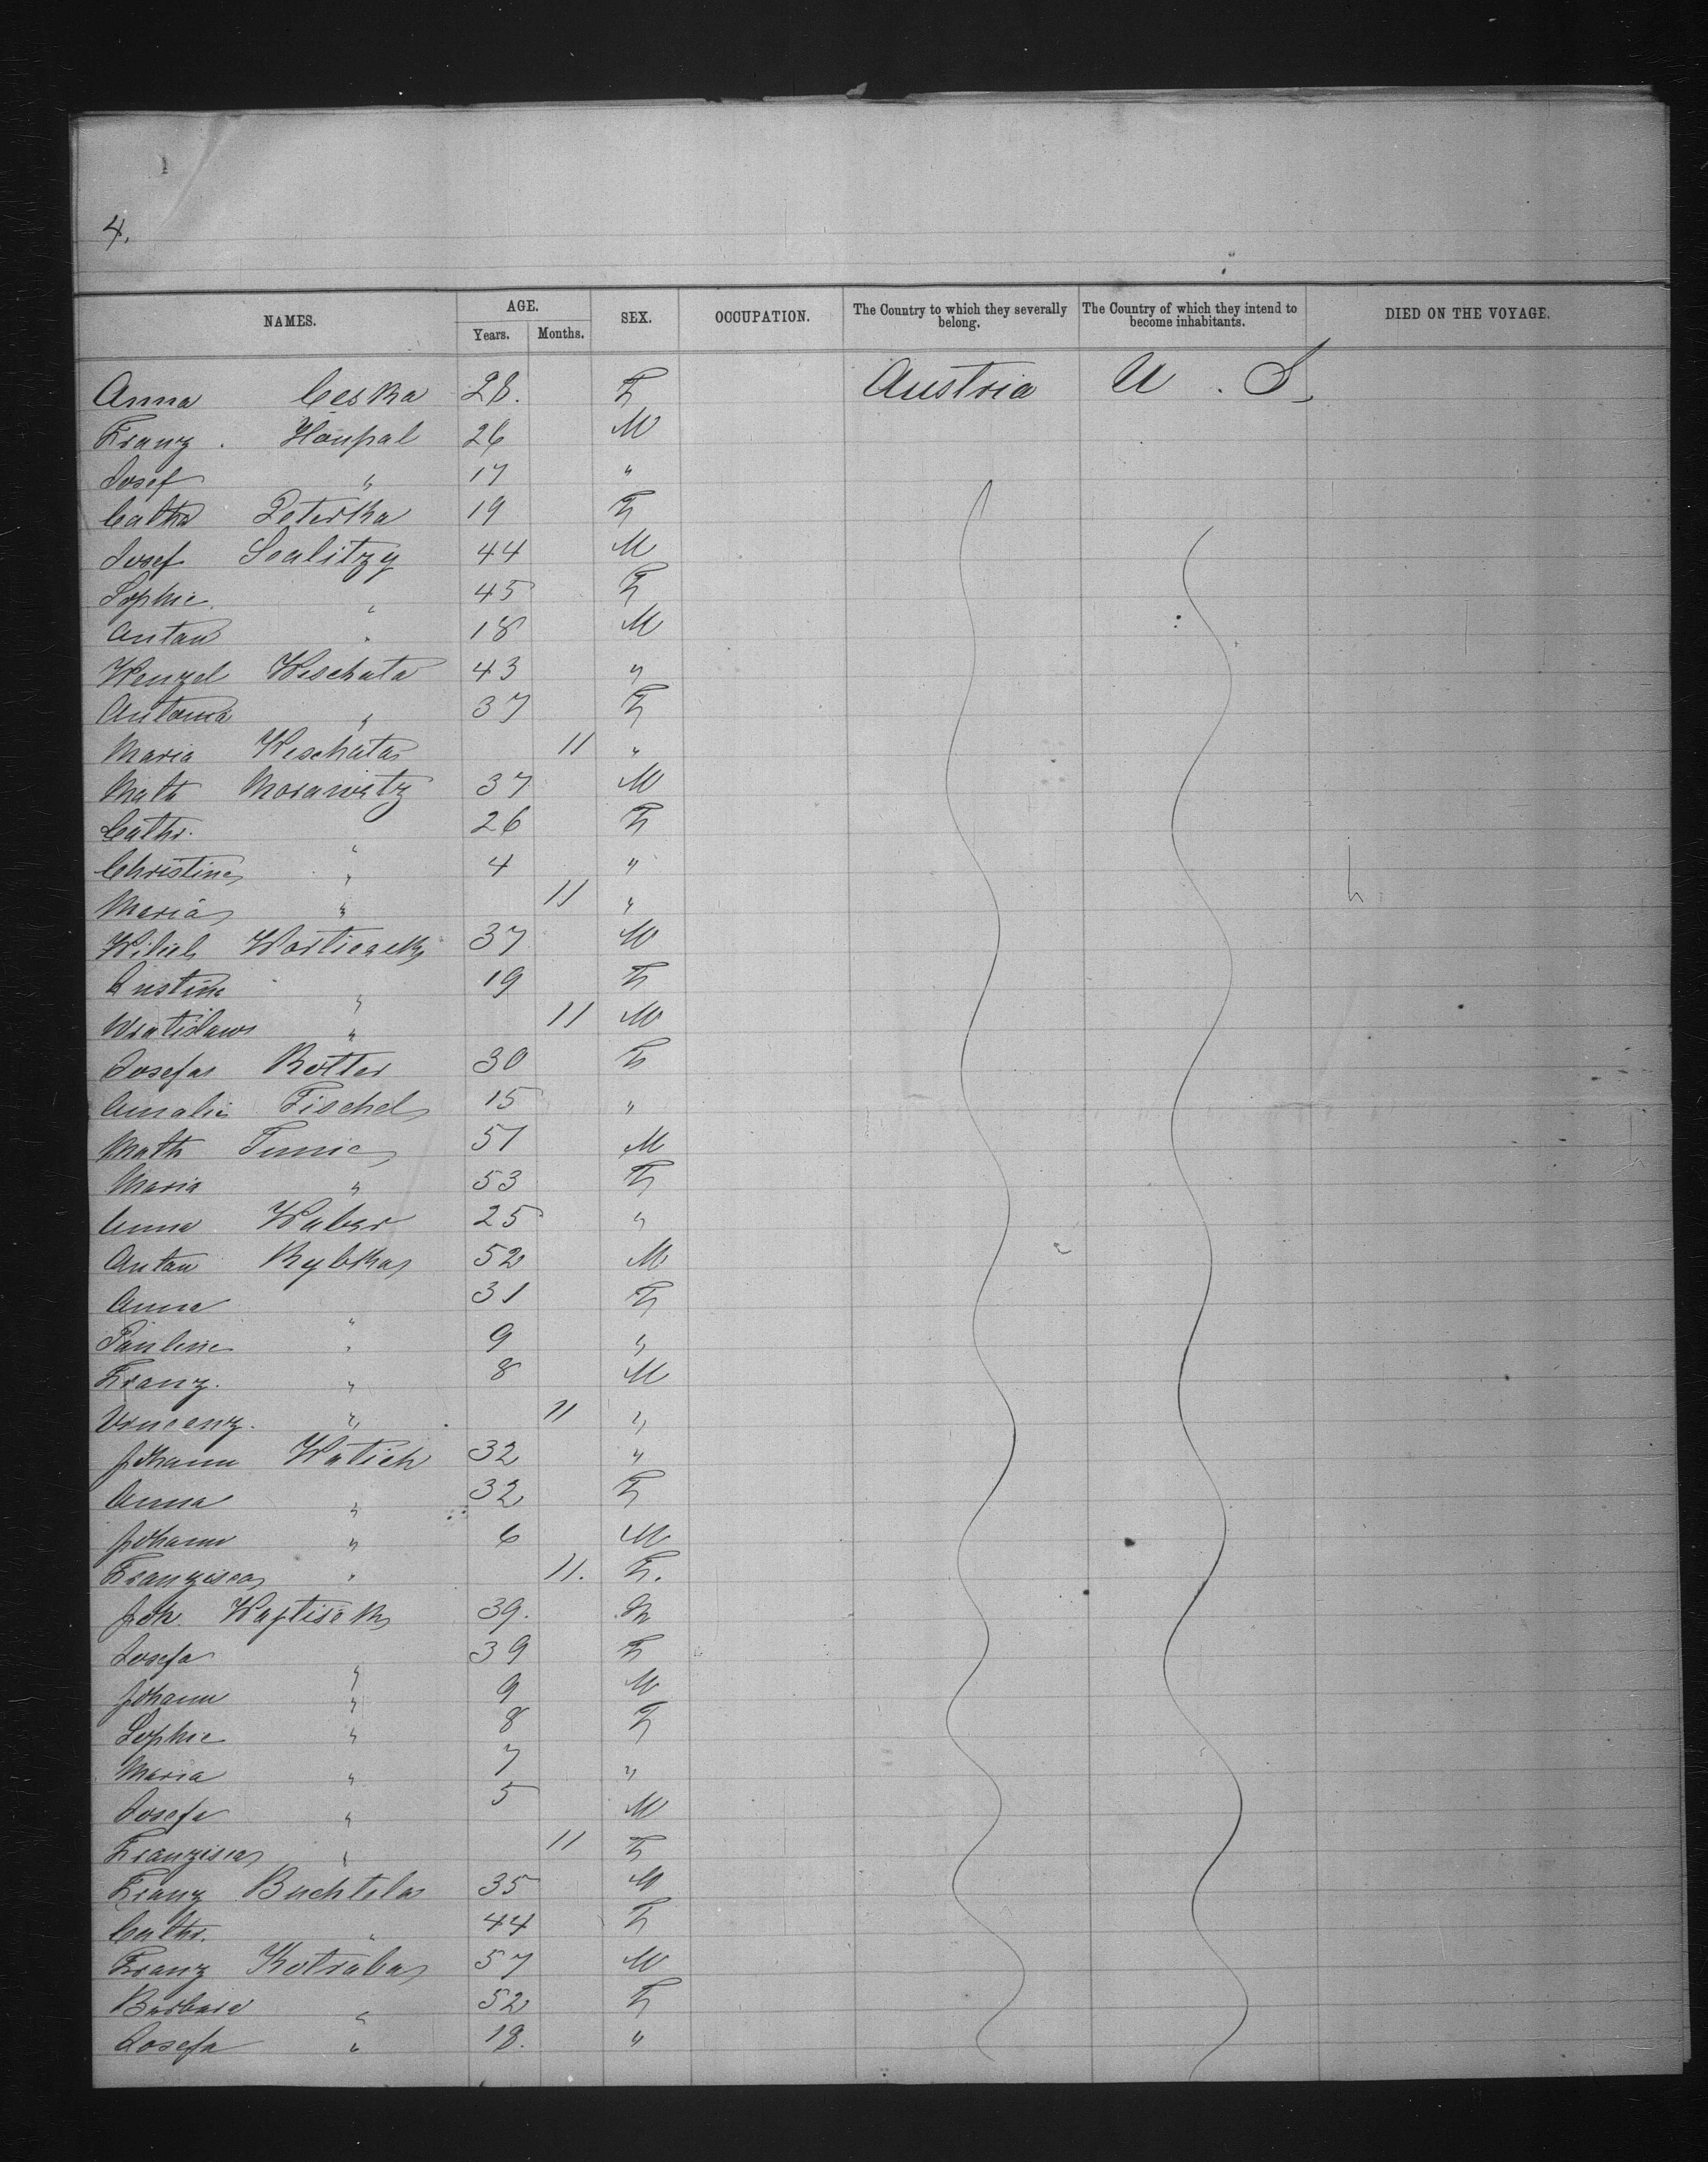 4.
NAMES. AGE. Years. Months. SEX. OCCUPATION. The Country to which they severally belong. The Country of which they intend to become inhabitants. DIED ON THE VOYAGE.
Anna Ceska 28. F Austria U. S.
Franz Houpal 26 M
Josef " 17 "
Catha Peterka 19 F
Josef Scalitzy 44 M
Sophie " 45 F
Anton " 18 M
Wenzel Weschata 43 "
Antonia " 37 F
Maria Weschata 11 "
Math Morawitz 37 M
Cathr. " 26 F
Christine " 4 "
Maria " 11 "
37 M
" 19 F
Wratislaw " 11 M
Josefa Rotter 30 F
Amalie Fischel 15 "
Math 51 M
Maria " 53 F
Anna Waber 25 "
Anton Rybka 52 M
Anna " 31 F
Pauline " 9 "
Franz. " 8 M
Vincenz. " 11 "
Johann Watich 32 "
Anna " 32 F
Johann " 6 M
Franzisca " 11. F.
Joh. 39. M
Josefa " 39 F
Johann " 9 M
Sophie " 8 F
Maria " 7 "
Josefa " 5 M
Franzisca " 11 F
Franz Buchtela 35 M
Cathr. " 44 F
Franz Kotraba 57 M
Barbara " 52 F
Josefa " 18. "